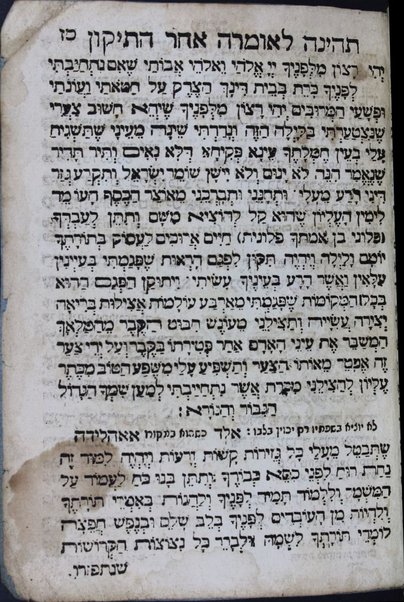 תחינה לאומרה אחר התיקון מז
יהי רצון מלפניך יי אלהי ואלהי אבותי שאם נתחייבתי
לפניך כרת בבית דינך הצדק על חטאתי ועונתי
ופשעי המרובים יהי רצון מלפניך שיהא חשוב צערי
שנצטערתי בלילה הזה ונדדתי שינה מעיני שתשגיח
עלי בעין חמלתך עינא פקיחא דלא נאים ותיר תדיר
שנאמר הנה לא ינום ולא יישן שומר ישראל ותקרע גזר
דיני רע מעלי ותחנני ותברכני מאוצר הכסף העומד
לימין העליון שהוא קל להוציא משם ותתן לעבדך
(פלוני בן אמתך פלונית) חיים ארוכים לעסוק בתורתך
יומם ולילה ויהיה תקון לפגם הראות שפגמתי בעיינין
עלאין ואשר הרע בעיניך עשיתי ויתוקן הפגם ההוא
בכל המקומות שפגמתי מארבע עולמות אצילות בריאה
יצירה עשייה ותצילני מעונש חבוט הקבר מהמלאך
המשבר את עיני האדם אחר פטירתו בקבר ועל ידי צער
זה אפטר מאותו הצער ותשפיע עלי משפע הטוב מכתר
עליון להצילני מכרת אשר נתחייבתי למען שמך הגדול
הגבור והנורא:
לא יוציא בשפתיו רק יכוין בלבו: אלד כשהוא בנקוד אאהלידה
שתבטל מעלי כל גזירות קשות ורעות ויהיה למוד זה
נחת רוח לפני כסא כבודך ותתן בנו כח לעמוד על
המשמר וללמוד תמיד לפניך ולהגות באמרי תורתך
ולהיות מן העובדים לפניך בלב שלם ובנפש חפצה
לומדי תורתך לשמה ולברר כל נצוצות הקדושות
שנתפזרו.